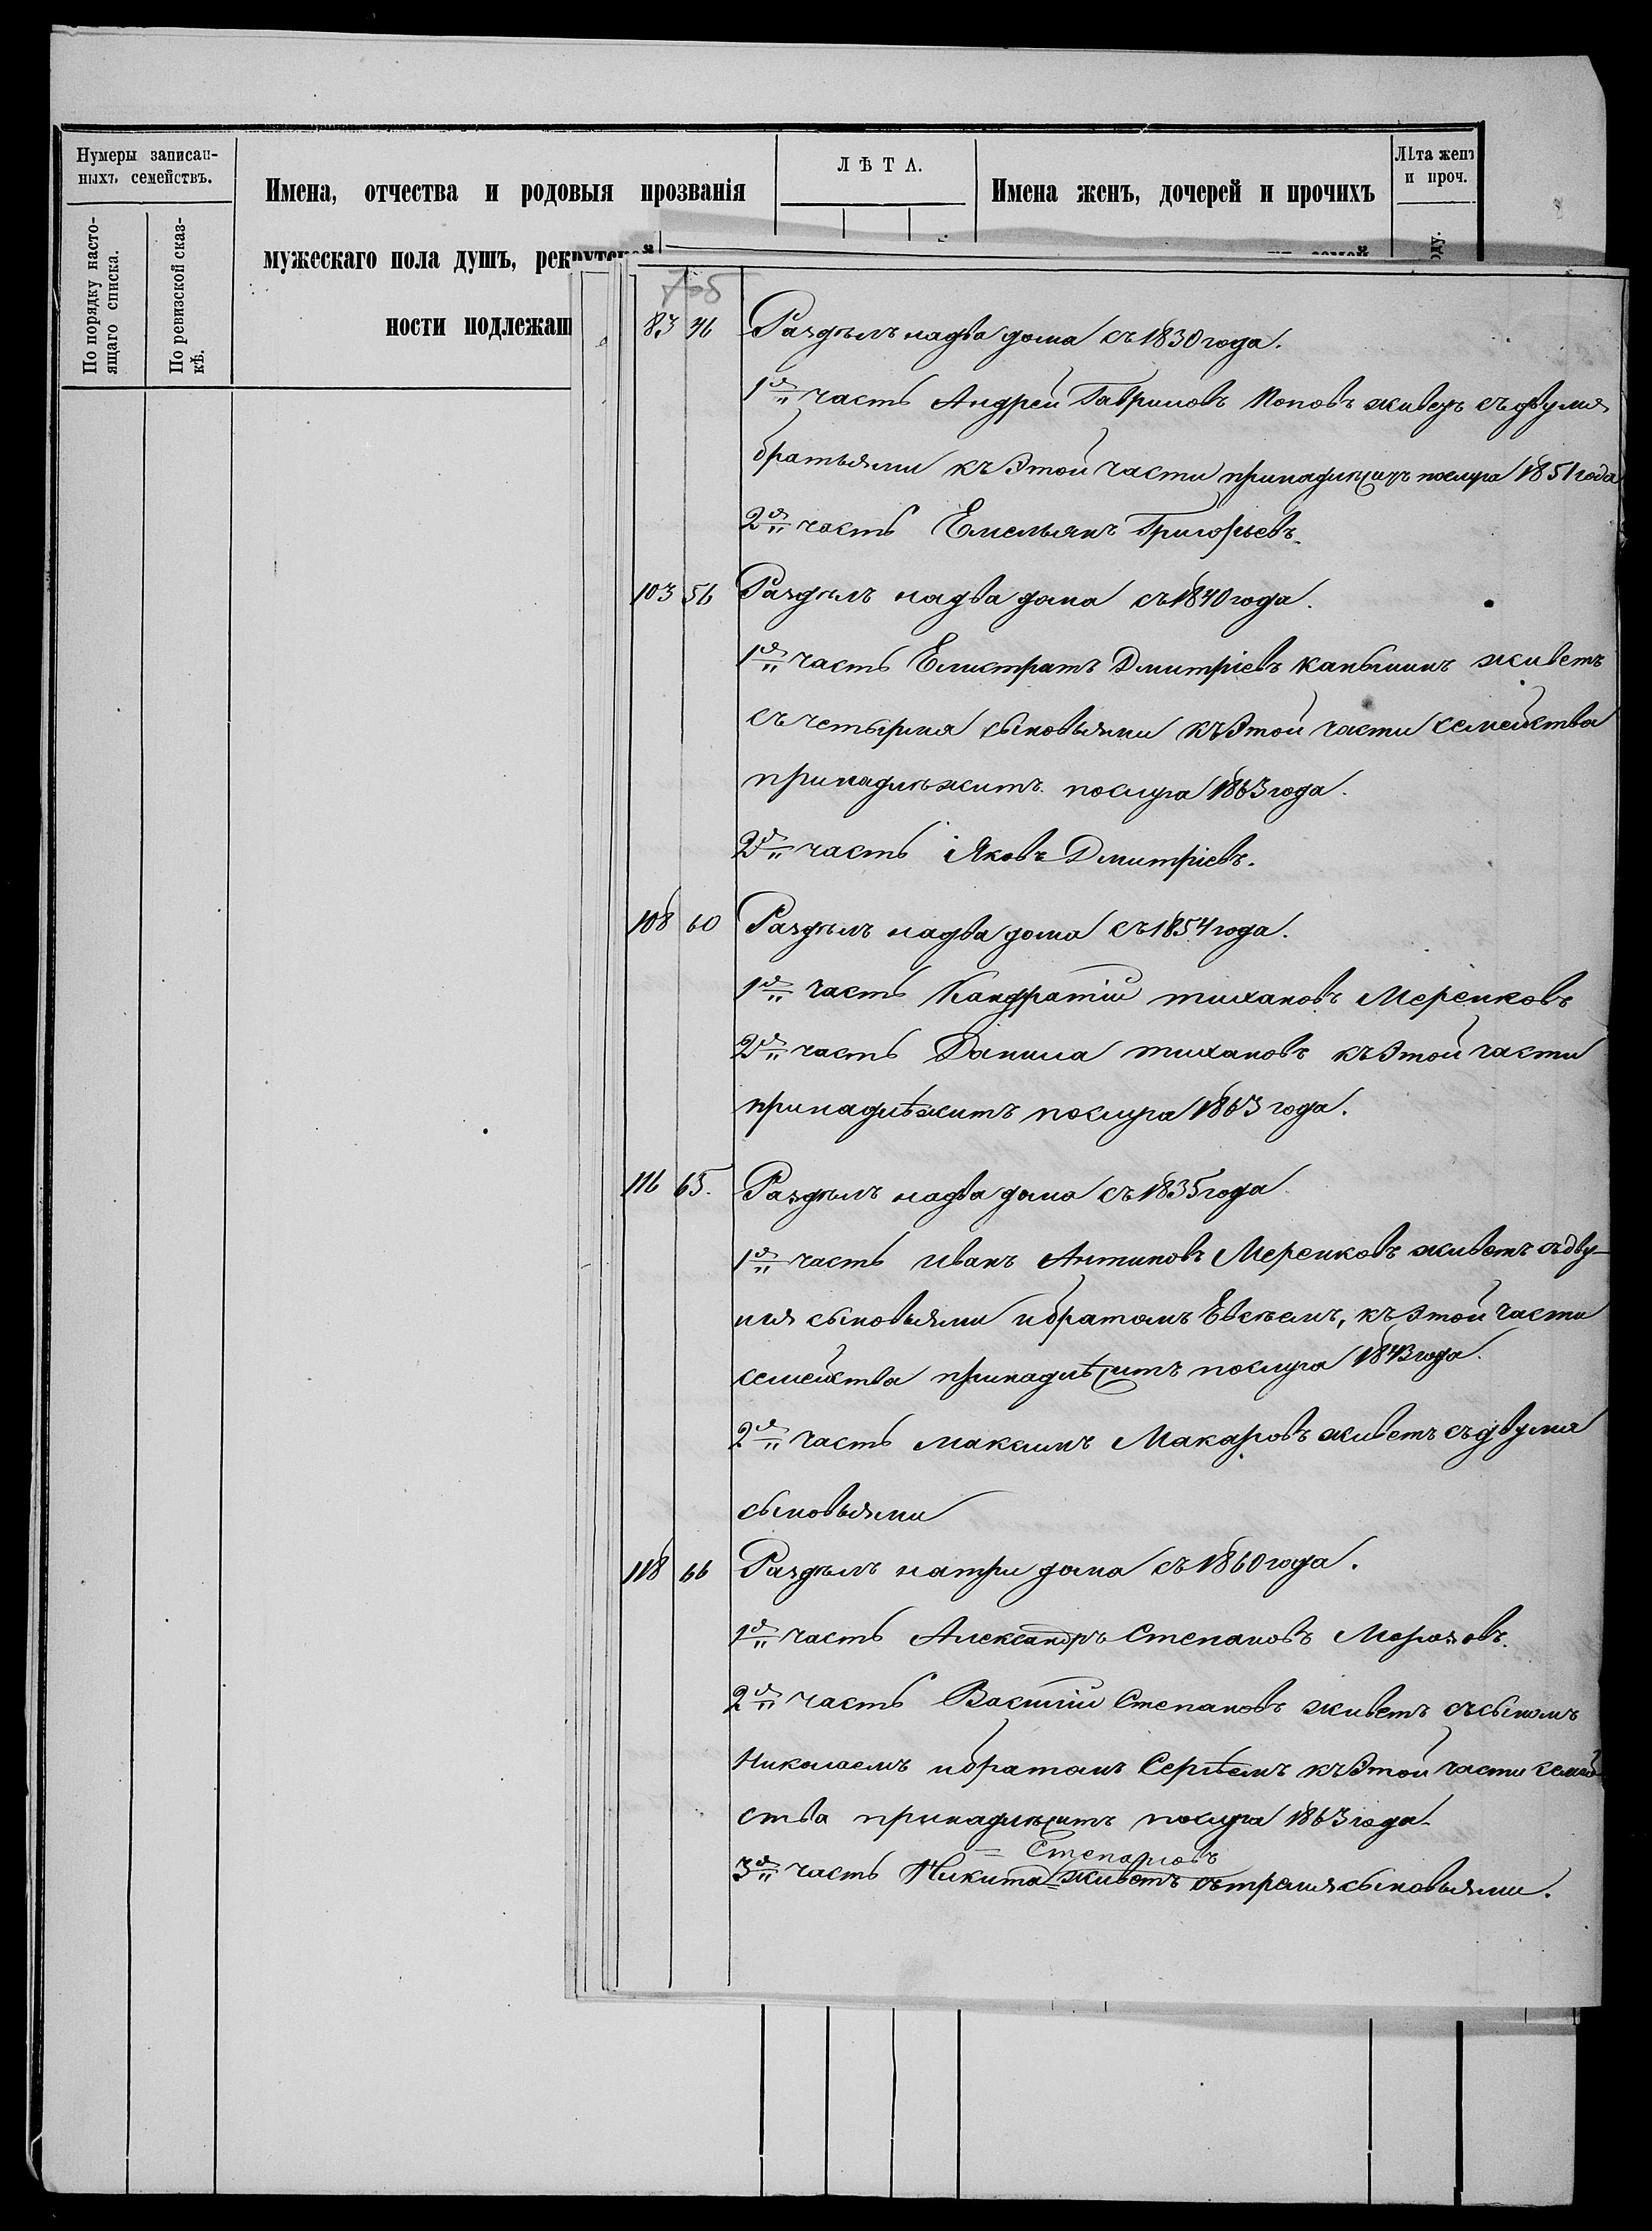 Нумеры записан-
ныхъ семействъ.
По порядку насто-
ящаго списка.
По ревизской сказ-
кѣ.
Имена, отчества и родовыя прозванія
мужескаго пола душъ, рекрутской
ности подлежащ
ЛѢТА.
Имена женъ, дочерей и прочихъ
Лѣта женъ
и проч.
83 46 Раздѣлъ надва дома съ 1830 года.
1я часть Андрей Гавриловъ Поповъ живетъ съ двумя
братьями къ этой части принадлежитъ послуга 1851 года
2я часть Емельянъ Григорьевъ.
103 56 Раздѣлъ надва дома съ 1840 года.
1я часть Елистратъ Дмитріевъ живетъ
съ четырмя сыновьями къ этой части семейства
принадлѣжитъ послуга 1863 года.
2я часть Яковъ Дмитріевъ.
108 60 Раздѣлъ надва дома съ 1854 года.
1я часть Кандратій тихановъ Меренковъ
2я часть Данила тихановъ къ этой части
принадлѣжитъ послуга 1863 года.
116 65. Раздѣлъ надва дома съ 1835 года
1я часть иванъ Антиповъ Меренковъ живетъ съ дву-
мя сыновьями и братомъ Евсѣемъ, къ этой части
семейства принадлѣжитъ послуга 1843 года.
2я часть максимъ Макаровъ живетъ съ двумя
сыновьями
118 66 Раздѣлъ натри дома съ 1860 года.
1я часть Александръ Степановъ Морозовъ.
2я часть Василій Степановъ живетъ съ сыномъ
Николаемъ и братомъ Сергѣемъ къ этой части семей
ства принадлѣжитъ послуга 1863 года
Степановъ
3я часть Никита живетъ стремя сыновьями.